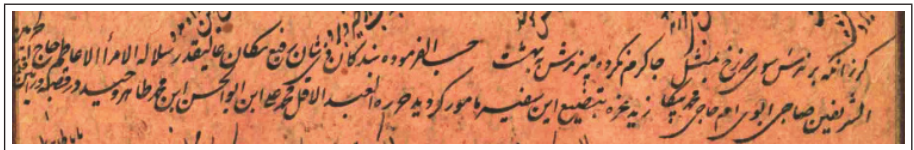 کرزانکه برندش سوی دوزخ بمثل جا کرم نکرده میبرندش به بهشت حسب الفرموده بندکان ذی شان رفیع مکان عالیقدر سلاله الامرا الاعاظم حاج
الشریفین صاحبی ابوی ام حاجی محمد بیکا زید عزه بتضییع این سفینه مامور کردید حرره العبد الاقل محمد علی ابن ابوالحسن ابن محمد طاهر وحید در قصبه